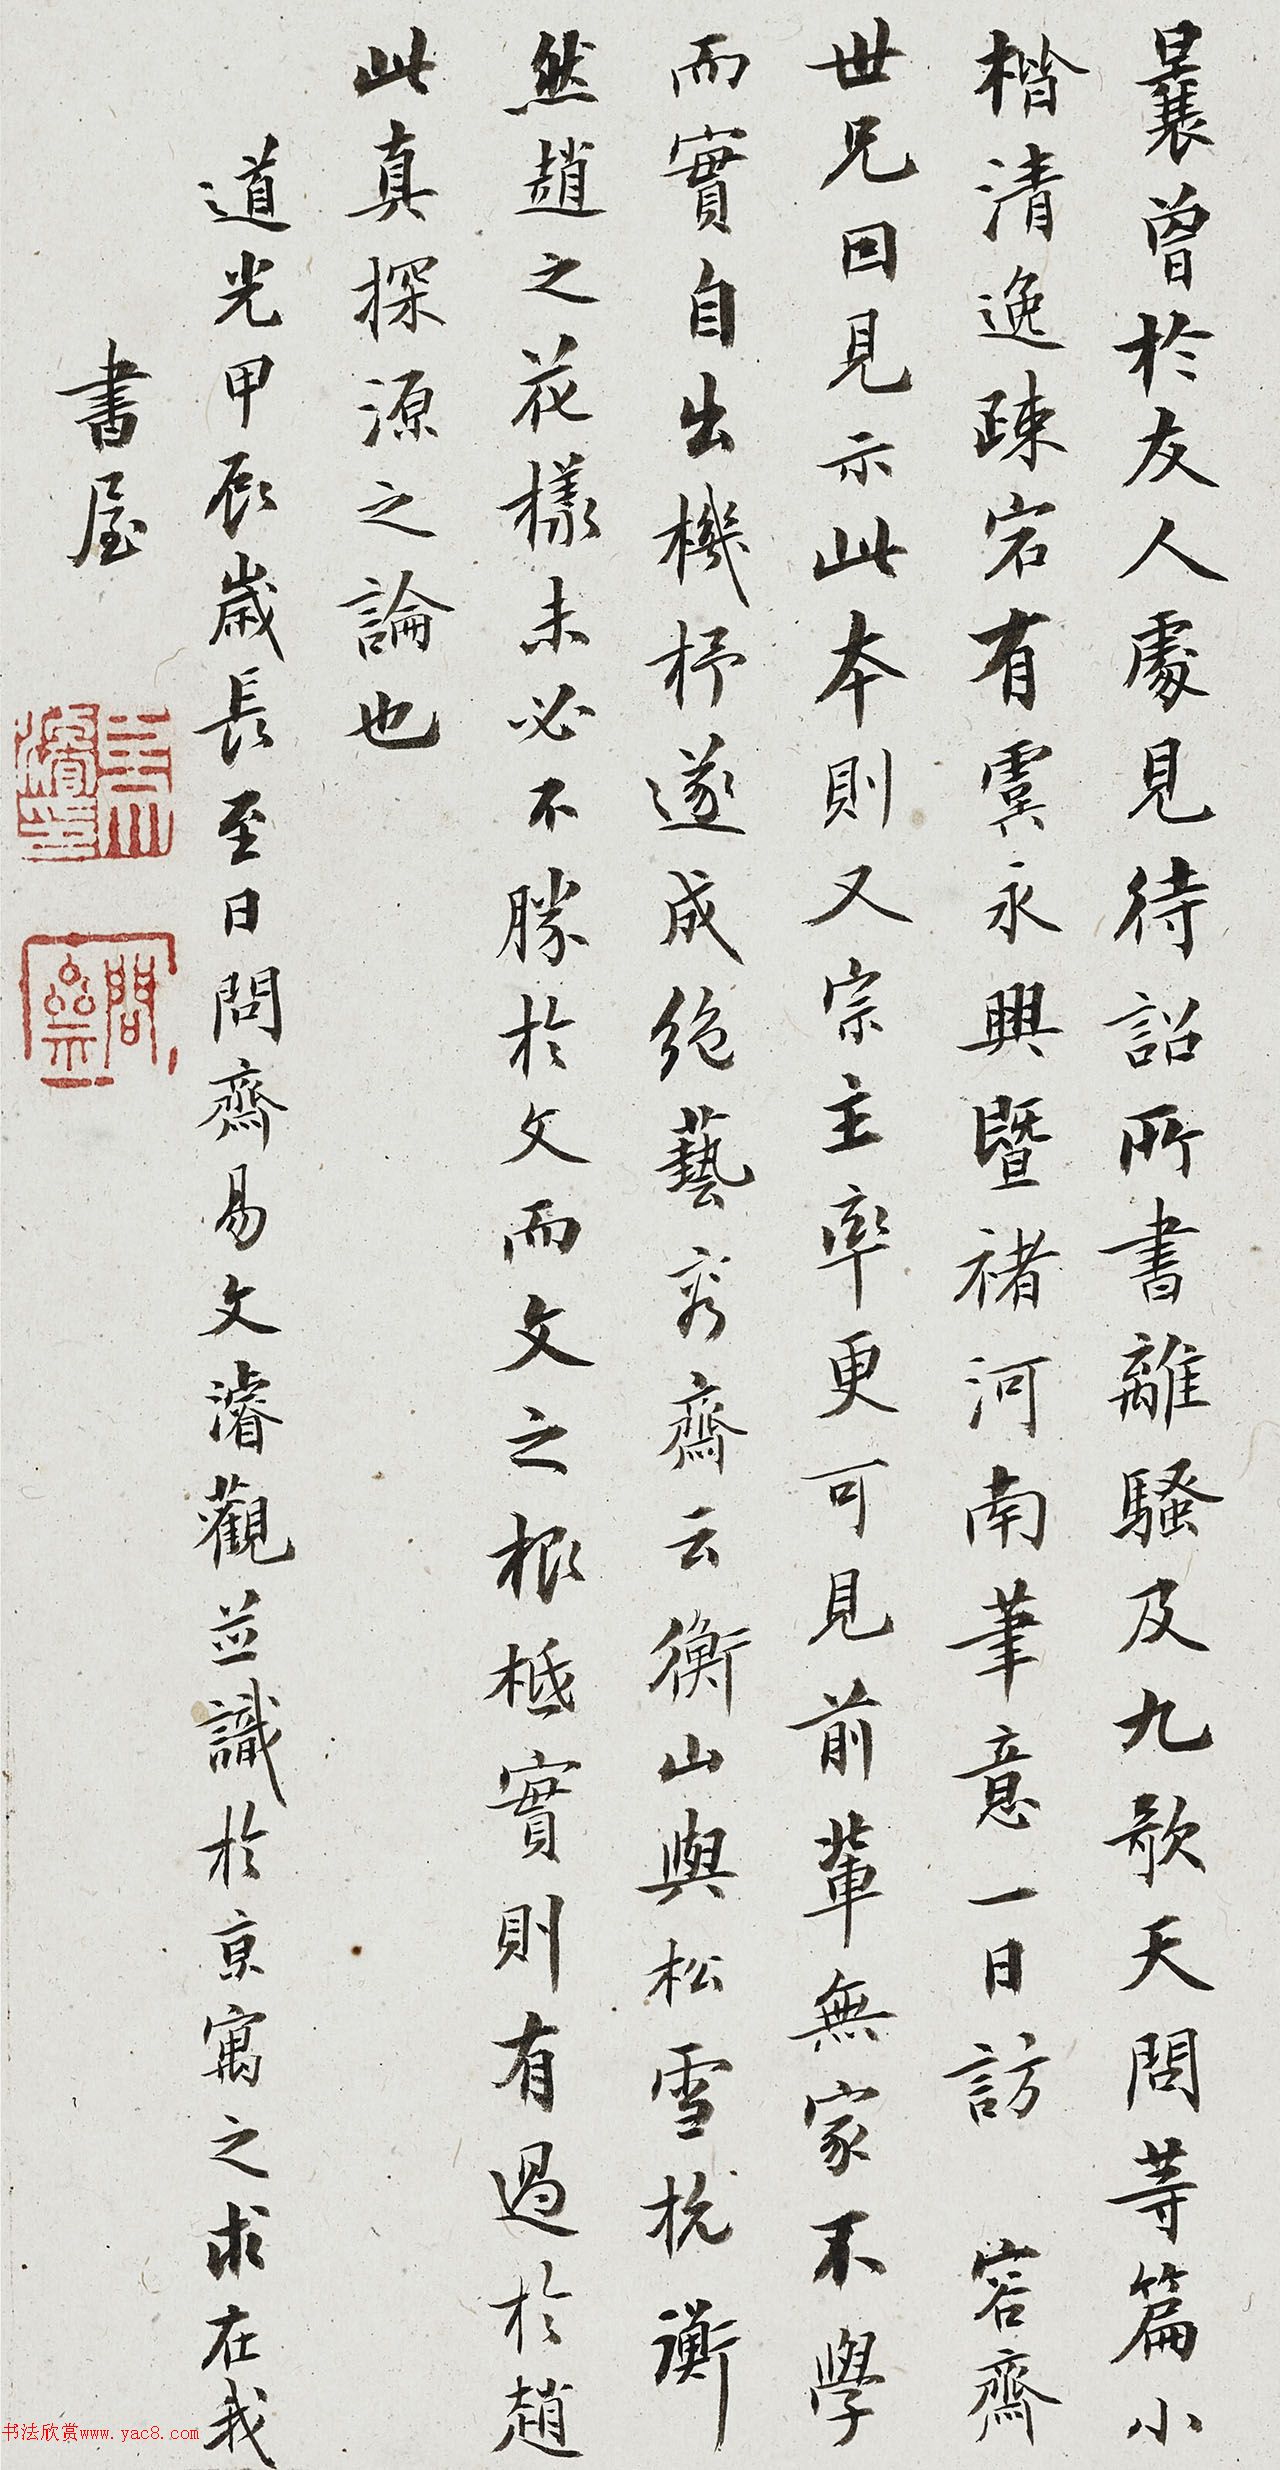 曩曾於友人處見待詔所書離騷及九歌天問等篇小
楷清逸疎宕有虞永興暨褚河南筆意一日訪 容齋
世兄因見示此本則又宗主率更可見前輩無家不學
而實自出機杼遂成絶藝容齋云衡山與松雪抗衡
然趙之花樣未必不勝於文而文之根柢實則有過於趙
此真探源之論也
道光甲辰歲長至日問齋易文濬觀並識於京寓之求在我
書屋
問齋
书法欣赏www.yac8.com